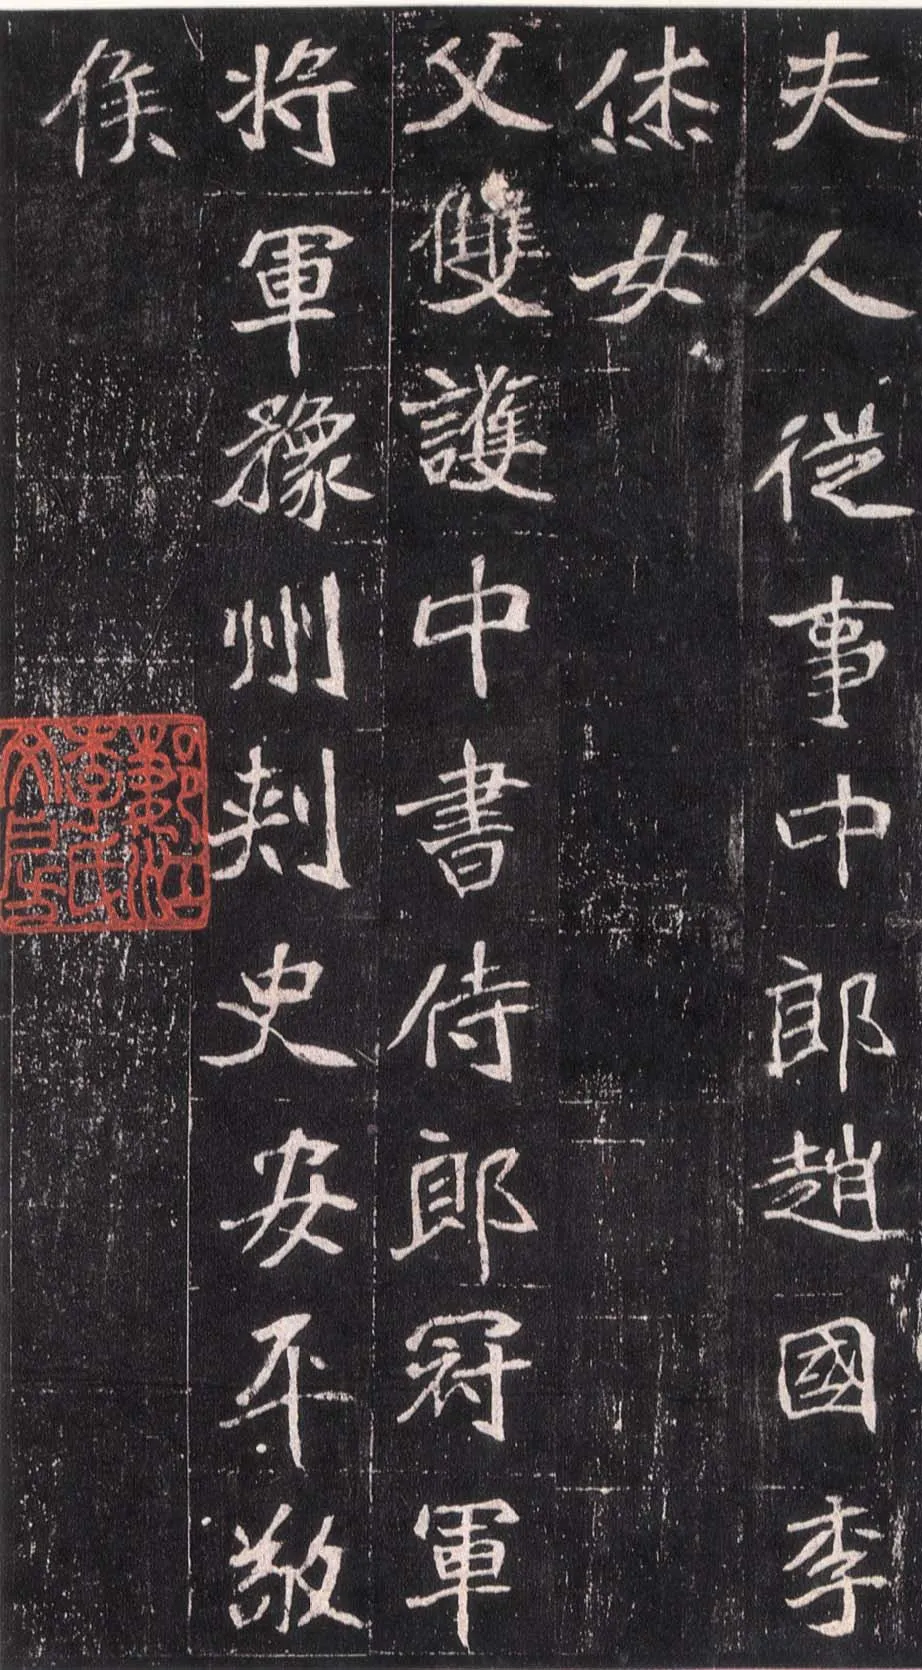 夫人從事中郎趙國李
烋女
父雙護中書侍郎冠軍
將軍豫州刾史安平敬
侯